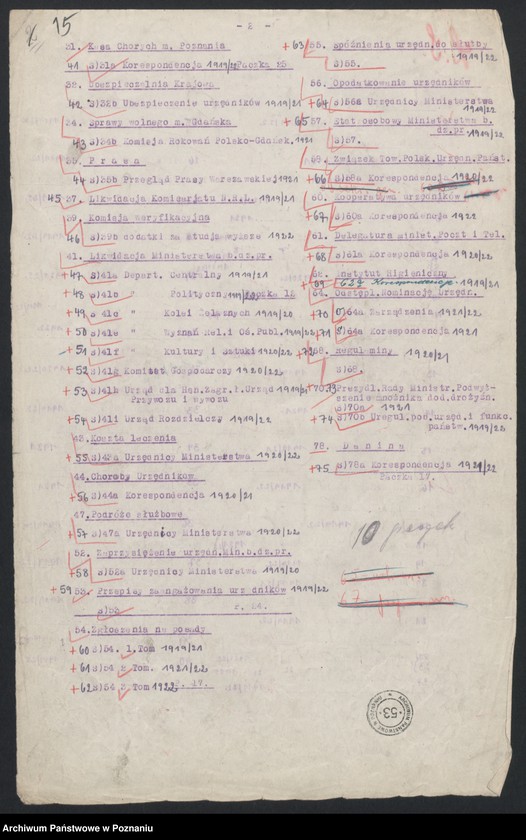 15
- 2 -
31. Kasa Chorych m. Poznania
41 S)31a Korespondencja 1919/21 Paczka 25
32. Ubezpieczalnia Krajowa
42 S)32b Ubezpieczenie urzędników 1919/21
34. Sprawy wolnego m. Gdańska
43 S)34b Komisja Rokowań Polsko-Gdańsk. 1921
35. Prasa
44 S)35b Przegląd Prasy Warszawskiej 1921
45 37. Likwidacja Komisarjatu N.R.L. 1919/21
39. Komisja weryfikacyjna
46 S)39b dodatki za studja wyższe 1922
41. Likwidacja Ministerstwa b.dz.pr.
+47 S)41a Depart. Centralny 1919/21
+48 S)41c " Polityczny Paczka 14
+49 S)41d " Kolei Żelaznych 1919/20
+50 S)41e " Wyznań Rel.i Oś.Publ. 1919/21
+51 S)41f " Kultury i Sztuki 1920/22
+52 S)41g Komitet Gospodarczy 1920/22
+53 S)41h Urząd dla Han.Zagr. Urząd 1919/21
Przywozu i Wywozu
+54 S)41i Urząd Rozdzielczy 1919/22
42. Koszta leczenia
+55 S)42a Urzędnicy Ministerstwa 1920/22
44. Choroby Urzędników
+56 S)44a Korespondencja 1920/21
47. Podróże służbowe
+57 S)47a Urzędnicy Ministerstwa 1920/22
52. Zaprzysiężenie urzędn. Min.b.dz.pr.
+58 S)52a Urzędnicy Ministerstwa 1919/20
+59 53. Przepisy zaangażowania urzędników 1919/22
S)53
54. Zgłoszenia na posady
+60 S)54. 1. Tom 1919/21
+61 S)54 2 Tom. 1921/22
+62 S)54 3 Tom 1922 17.
+63 55. Spóźnienia urzędn. do służby
S)55. 1919/22
56. Opodatkowanie urzędników
+64 S)56a Urzędnicy Ministerstwa 1919/22
+65 57. Etat osobowy Ministerstwa b.
dz.pr 1919/22
S)57.
59. Związek Tow.Polsk.Urzędn.Państ.
+66 S)59a Korespondencja 1920/22
60. Kooperatywa urzędników
+67 S)60a Korespondencja 1922
61. Delegatura Minist.Poczt i Tel.
+68 S)61a Korespondencja 1920/22
62. Instytut Higieniczny
+69 62a Korespondencja 1919/21
64. Odstępl. Nominacje Urzędn.
+70 S)64a Zarządzenia 1921/22
+71 S)64a Korespondencja 1921
+72 68. Regulaminy 1920/21
S)68.
70. Prezydj.Rady Ministr. Podwyż-
szenie mnożnika dod.drożyźn.
S)70a 1921
+74 S)70b Uregul.pob.urzęd.i funkc.
państw. 1919/22
78. Danina
+75 S)78a Korespondencja 1921/22
Paczka 17.
10
67
ARCHIWUM PAŃSTWOWE W POZNANIU
53
Archiwum Państwowe w Poznaniu